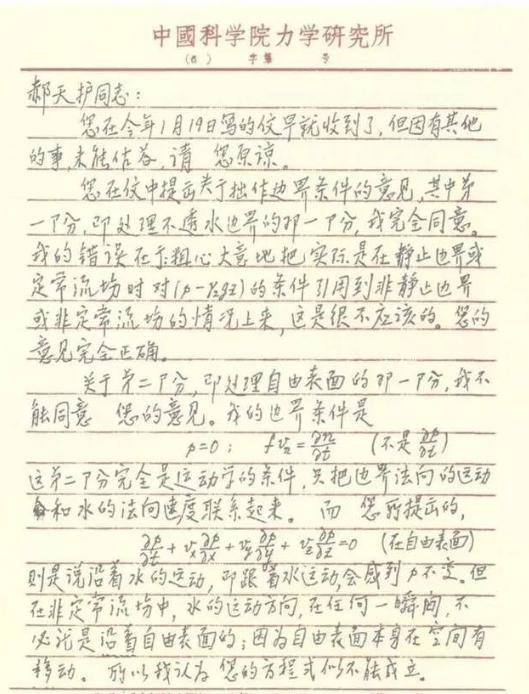 中國科学院力学研究所
( ) 字第 号
郝天护同志：
您在今年1月19日写的信早就收到了，但因有其他
的事，未能作答，请 您原谅。
您在信中提出关于拙作边界条件的意见，其中第
一部分，即处理不透水边界的那一部分，我完全同意。
我的错误在于粗心大意地把实际是在静止边界或
定常流场时对(p-γ₀gz)的条件引用到非静止边界
或非定常流场的情况上来，这是很不应该的。您的
意见完全正确。
关于第二部分，即处理自由表面的那一部分，我不
能同意 您的意见。我的边界条件是
p=0； fvₙ=∂n/∂t （不是∂p/∂t）
这第二部分完全是运动学的条件，只把边界法向的运动
和水的法向速度联系起来。而 您所提出的，
∂p/∂t+vₓ∂p/∂x+vᵧ∂p/∂y+v_z∂p/∂z=0 （在自由表面）
则是说沿着水的运动，即跟着水运动，会感到p不变。但
在非定常流场中，水的运动方向，在任何一瞬间，不
必讫是沿着自由表面的；因为自由表面本身在空间有
移动。所以我认为 您的方程式似不能成立。